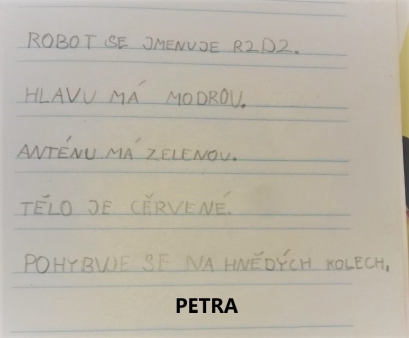 ROBOT SE JMENUJE R2D2.
HLAVU MÁ MODROU.
ANTÉNU MÁ ZELENOU.
TĚLO JE CĚRVENÉ.
POHYBUJE SE NA HNĚDÝCH KOLECH.
PETRA